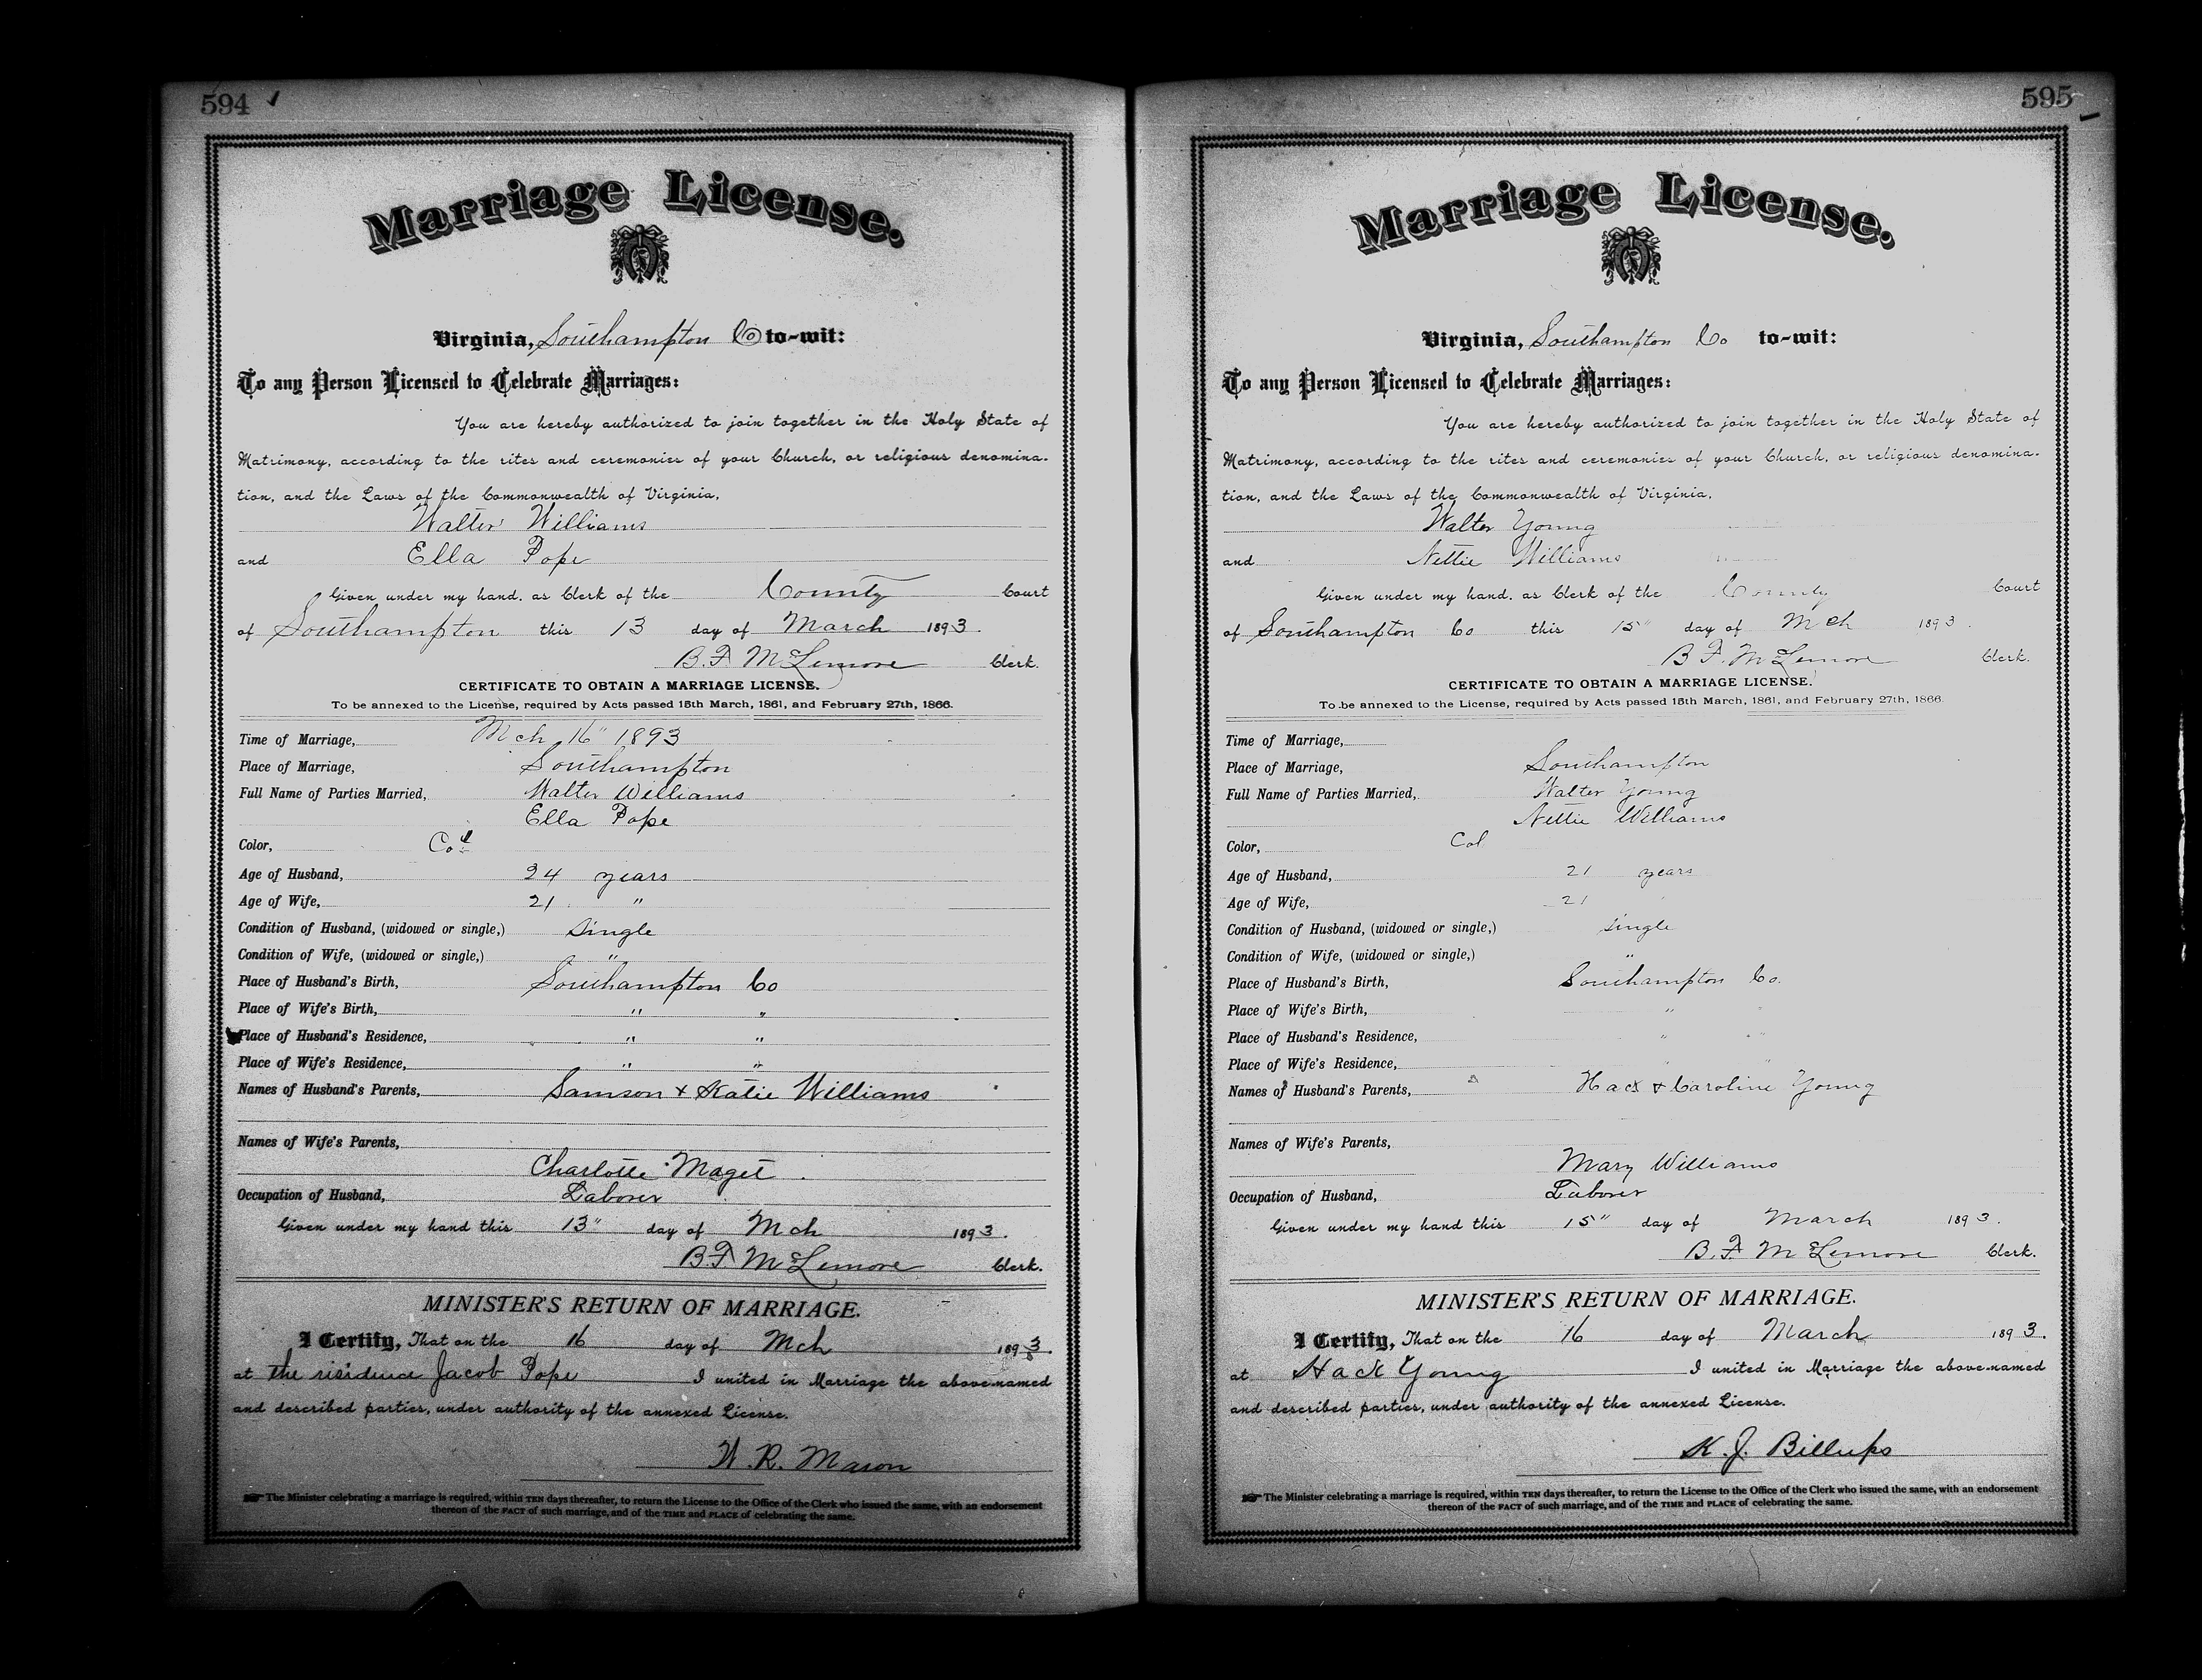 594
Marriage License.
Virginia, Southampton Co to-wit:
To any Person Licensed to Celebrate Marriages:
You are hereby authorized to join together in the Holy State of
Matrimony, according to the rites and ceremonies of your Church, or religious denomina-
tion, and the Laws of the Commonwealth of Virginia,
Walter Williams
and Ella Pope
Given under my hand, as Clerk of the County Court
of Southampton this 13 day of March 1893.
B. F. McLemore Clerk.
CERTIFICATE TO OBTAIN A MARRIAGE LICENSE.
To be annexed to the License, required by Acts passed 15th March, 1861, and February 27th, 1866.
Time of Marriage, Mch 16" 1893
Place of Marriage, Southampton
Full Name of Parties Married, Walter Williams
Ella Pope
Color, Cod
Age of Husband, 24 years
Age of Wife, 21 "
Condition of Husband, (widowed or single,) Single
Condition of Wife, (widowed or single,) "
Place of Husband's Birth, Southampton Co
Place of Wife's Birth, " "
Place of Husband's Residence, " "
Place of Wife's Residence, " "
Names of Husband's Parents, Samson + Katie Williams
Names of Wife's Parents,
Charlotte Maget
Occupation of Husband, Laborer
Given under my hand this 13" day of Mch 1893.
B. F. McLemore Clerk.
MINISTER'S RETURN OF MARRIAGE.
I Certify, That on the 16 day of Mch 1893.
at the residence Jacob Pope I united in Marriage the above-named
and described parties, under authority of the annexed License.
W. R. Mason
The Minister celebrating a marriage is required, within TEN days thereafter, to return the License to the Office of the Clerk who issued the same, with an endorsement
thereon of the FACT of such marriage, and of the TIME and PLACE of celebrating the same.
595
Marriage License.
Virginia, Southampton Co to-wit:
To any Person Licensed to Celebrate Marriages:
You are hereby authorized to join together in the Holy State of
Matrimony, according to the rites and ceremonies of your Church, or religious denomina-
tion, and the Laws of the Commonwealth of Virginia,
Walter Young
and Nettie Williams
Given under my hand, as Clerk of the County Court
of Southampton Co this 15" day of Mch 1893.
B. F. McLemore Clerk.
CERTIFICATE TO OBTAIN A MARRIAGE LICENSE.
To be annexed to the License, required by Acts passed 15th March, 1861, and February 27th, 1866.
Time of Marriage,
Place of Marriage, Southampton
Full Name of Parties Married, Walter Young
Nettie Williams
Color, Col
Age of Husband, 21 years
Age of Wife, 21
Condition of Husband, (widowed or single,) Single
Condition of Wife, (widowed or single,) "
Place of Husband's Birth, Southampton Co.
Place of Wife's Birth, "
Place of Husband's Residence, " "
Place of Wife's Residence, " "
Names of Husband's Parents, Hack + Caroline Young
Names of Wife's Parents,
Mary Williams
Occupation of Husband, Laborer
Given under my hand this 15" day of March 1893.
B. F. McLemore Clerk.
MINISTER'S RETURN OF MARRIAGE.
I Certify, That on the 16 day of March 1893.
at Hack Young I united in Marriage the above-named
and described parties, under authority of the annexed License.
K. J. Billups
The Minister celebrating a marriage is required, within TEN days thereafter, to return the License to the Office of the Clerk who issued the same, with an endorsement
thereon of the FACT of such marriage, and of the TIME and PLACE of celebrating the same.